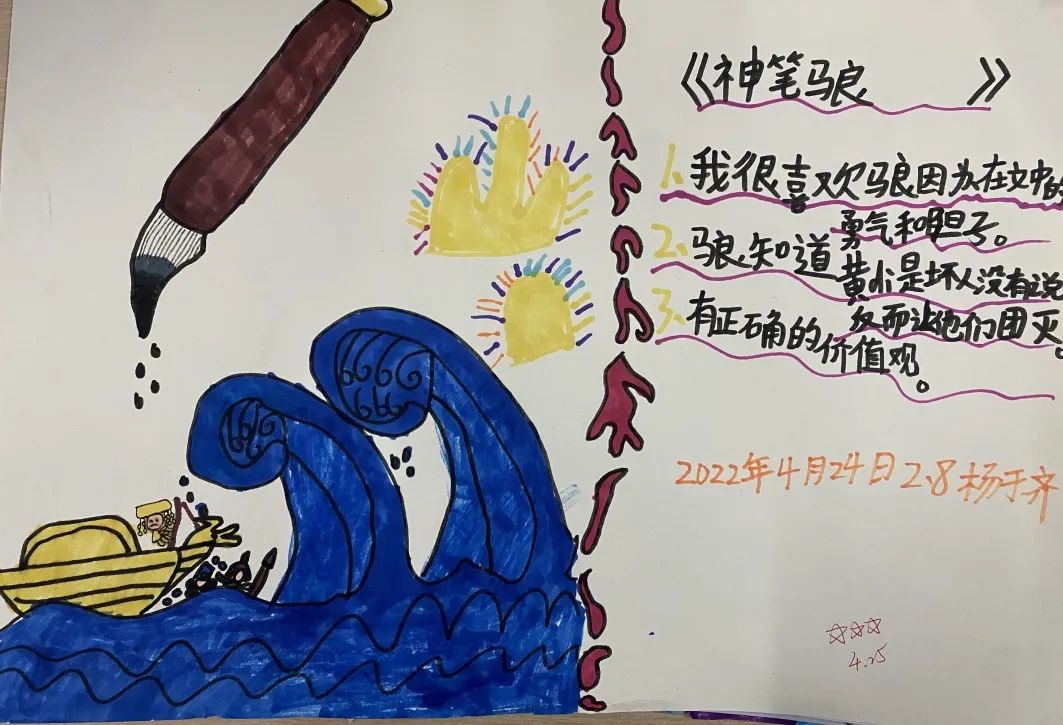 《神笔马良》
1、我很喜欢马良因为在文中的
勇气和胆子。
2、马良知道黄小是坏人没有说
反而让他们团灭。
3、有正确的价值观。
2022年4月24日 2.8 杨于齐
4.25